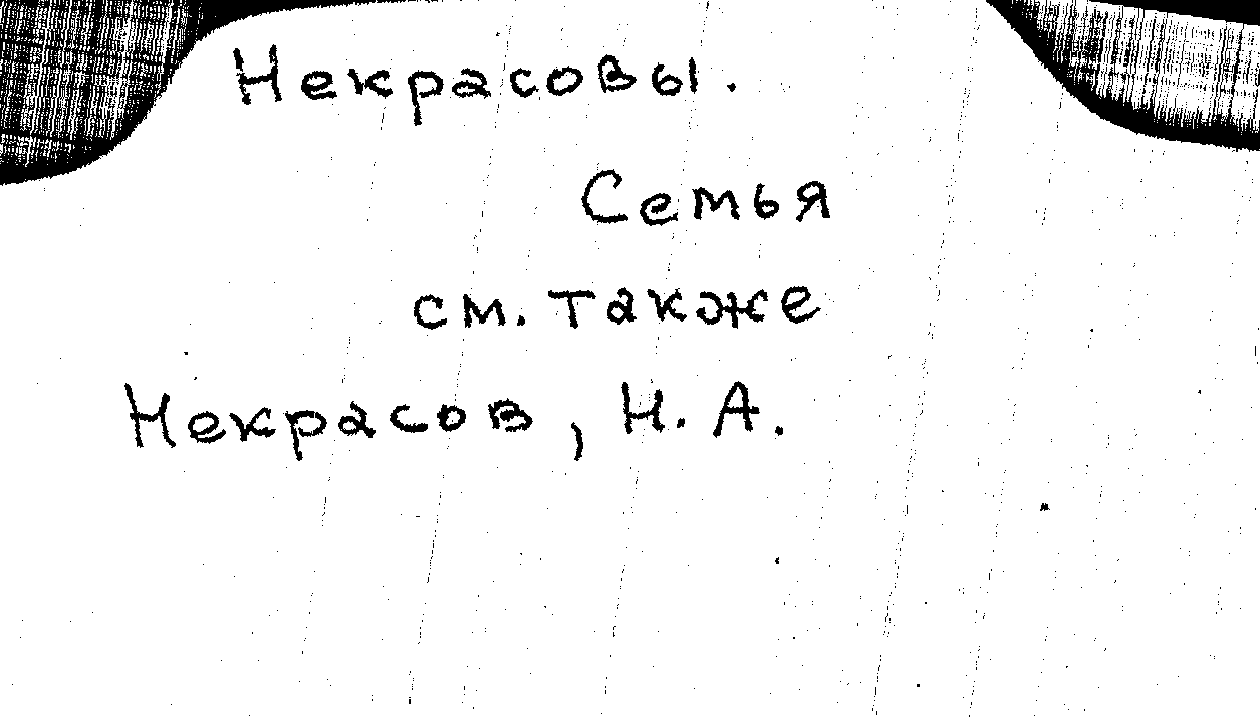 Некрасовы.
Семья
см. также
Некрасов, Н. А.